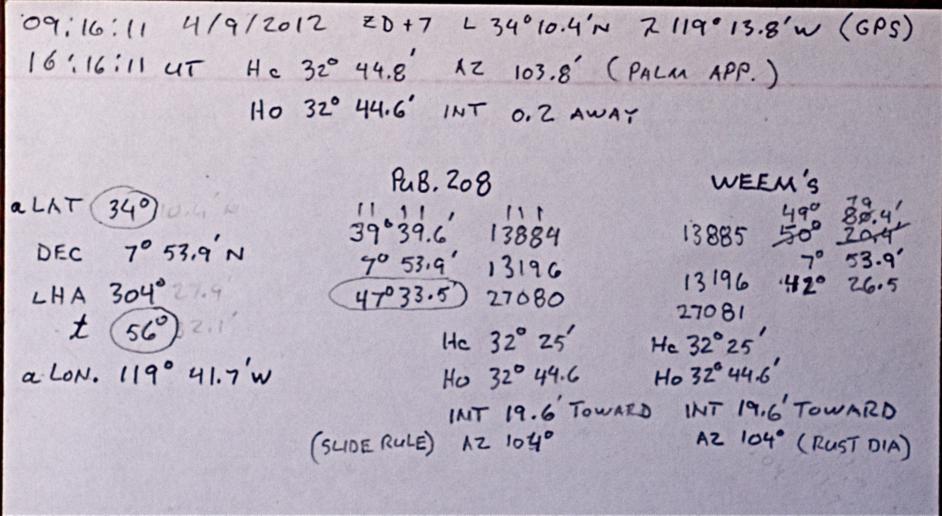 09:16:11 4/9/2012 ZD+7 L 34° 10.4'N λ 119° 13.8'W (GPS)
16:16:11 UT Hc 32° 44.8' AZ 103.8' (PALM APP.)
Ho 32° 44.6' INT 0.2 AWAY
PUB. 208 WEEM'S
a LAT 34° 10.4'N
39° 39.6' 13884
13885 50° 20.4' 49° 80.4' 79
DEC 7° 53.9'N
7° 53.9' 13196
7° 53.9'
LHA 304° 27.9'
47° 33.5' 27080
13196 42° 26.5
t 56°
27081
a LON. 119° 41.7'W
Hc 32° 25' Hc 32° 25'
Ho 32° 44.6 Ho 32° 44.6'
INT 19.6' TOWARD INT 19.6' TOWARD
(SLIDE RULE) AZ 104° AZ 104° (RUST DIA)